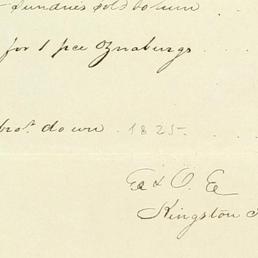 Sundries sold
for 1 pce Oznaburgs
brot. down 1825-
E & O. E
Kingston